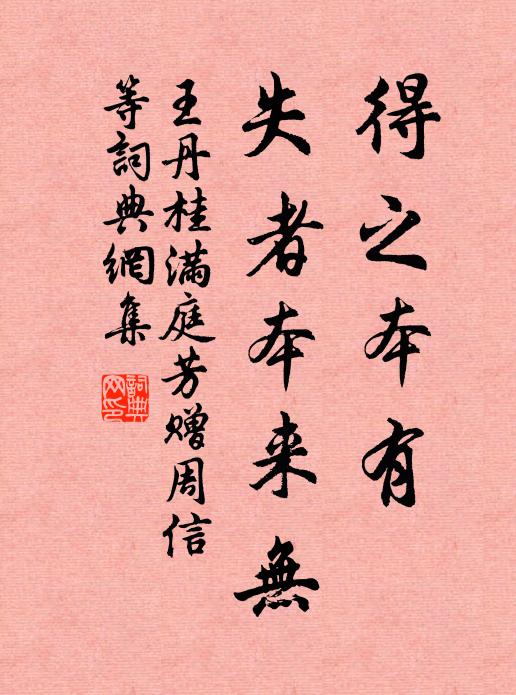 得之本有
失者本来無
王丹桂滿庭芳赠周信
等詞典網集
詞典
网印